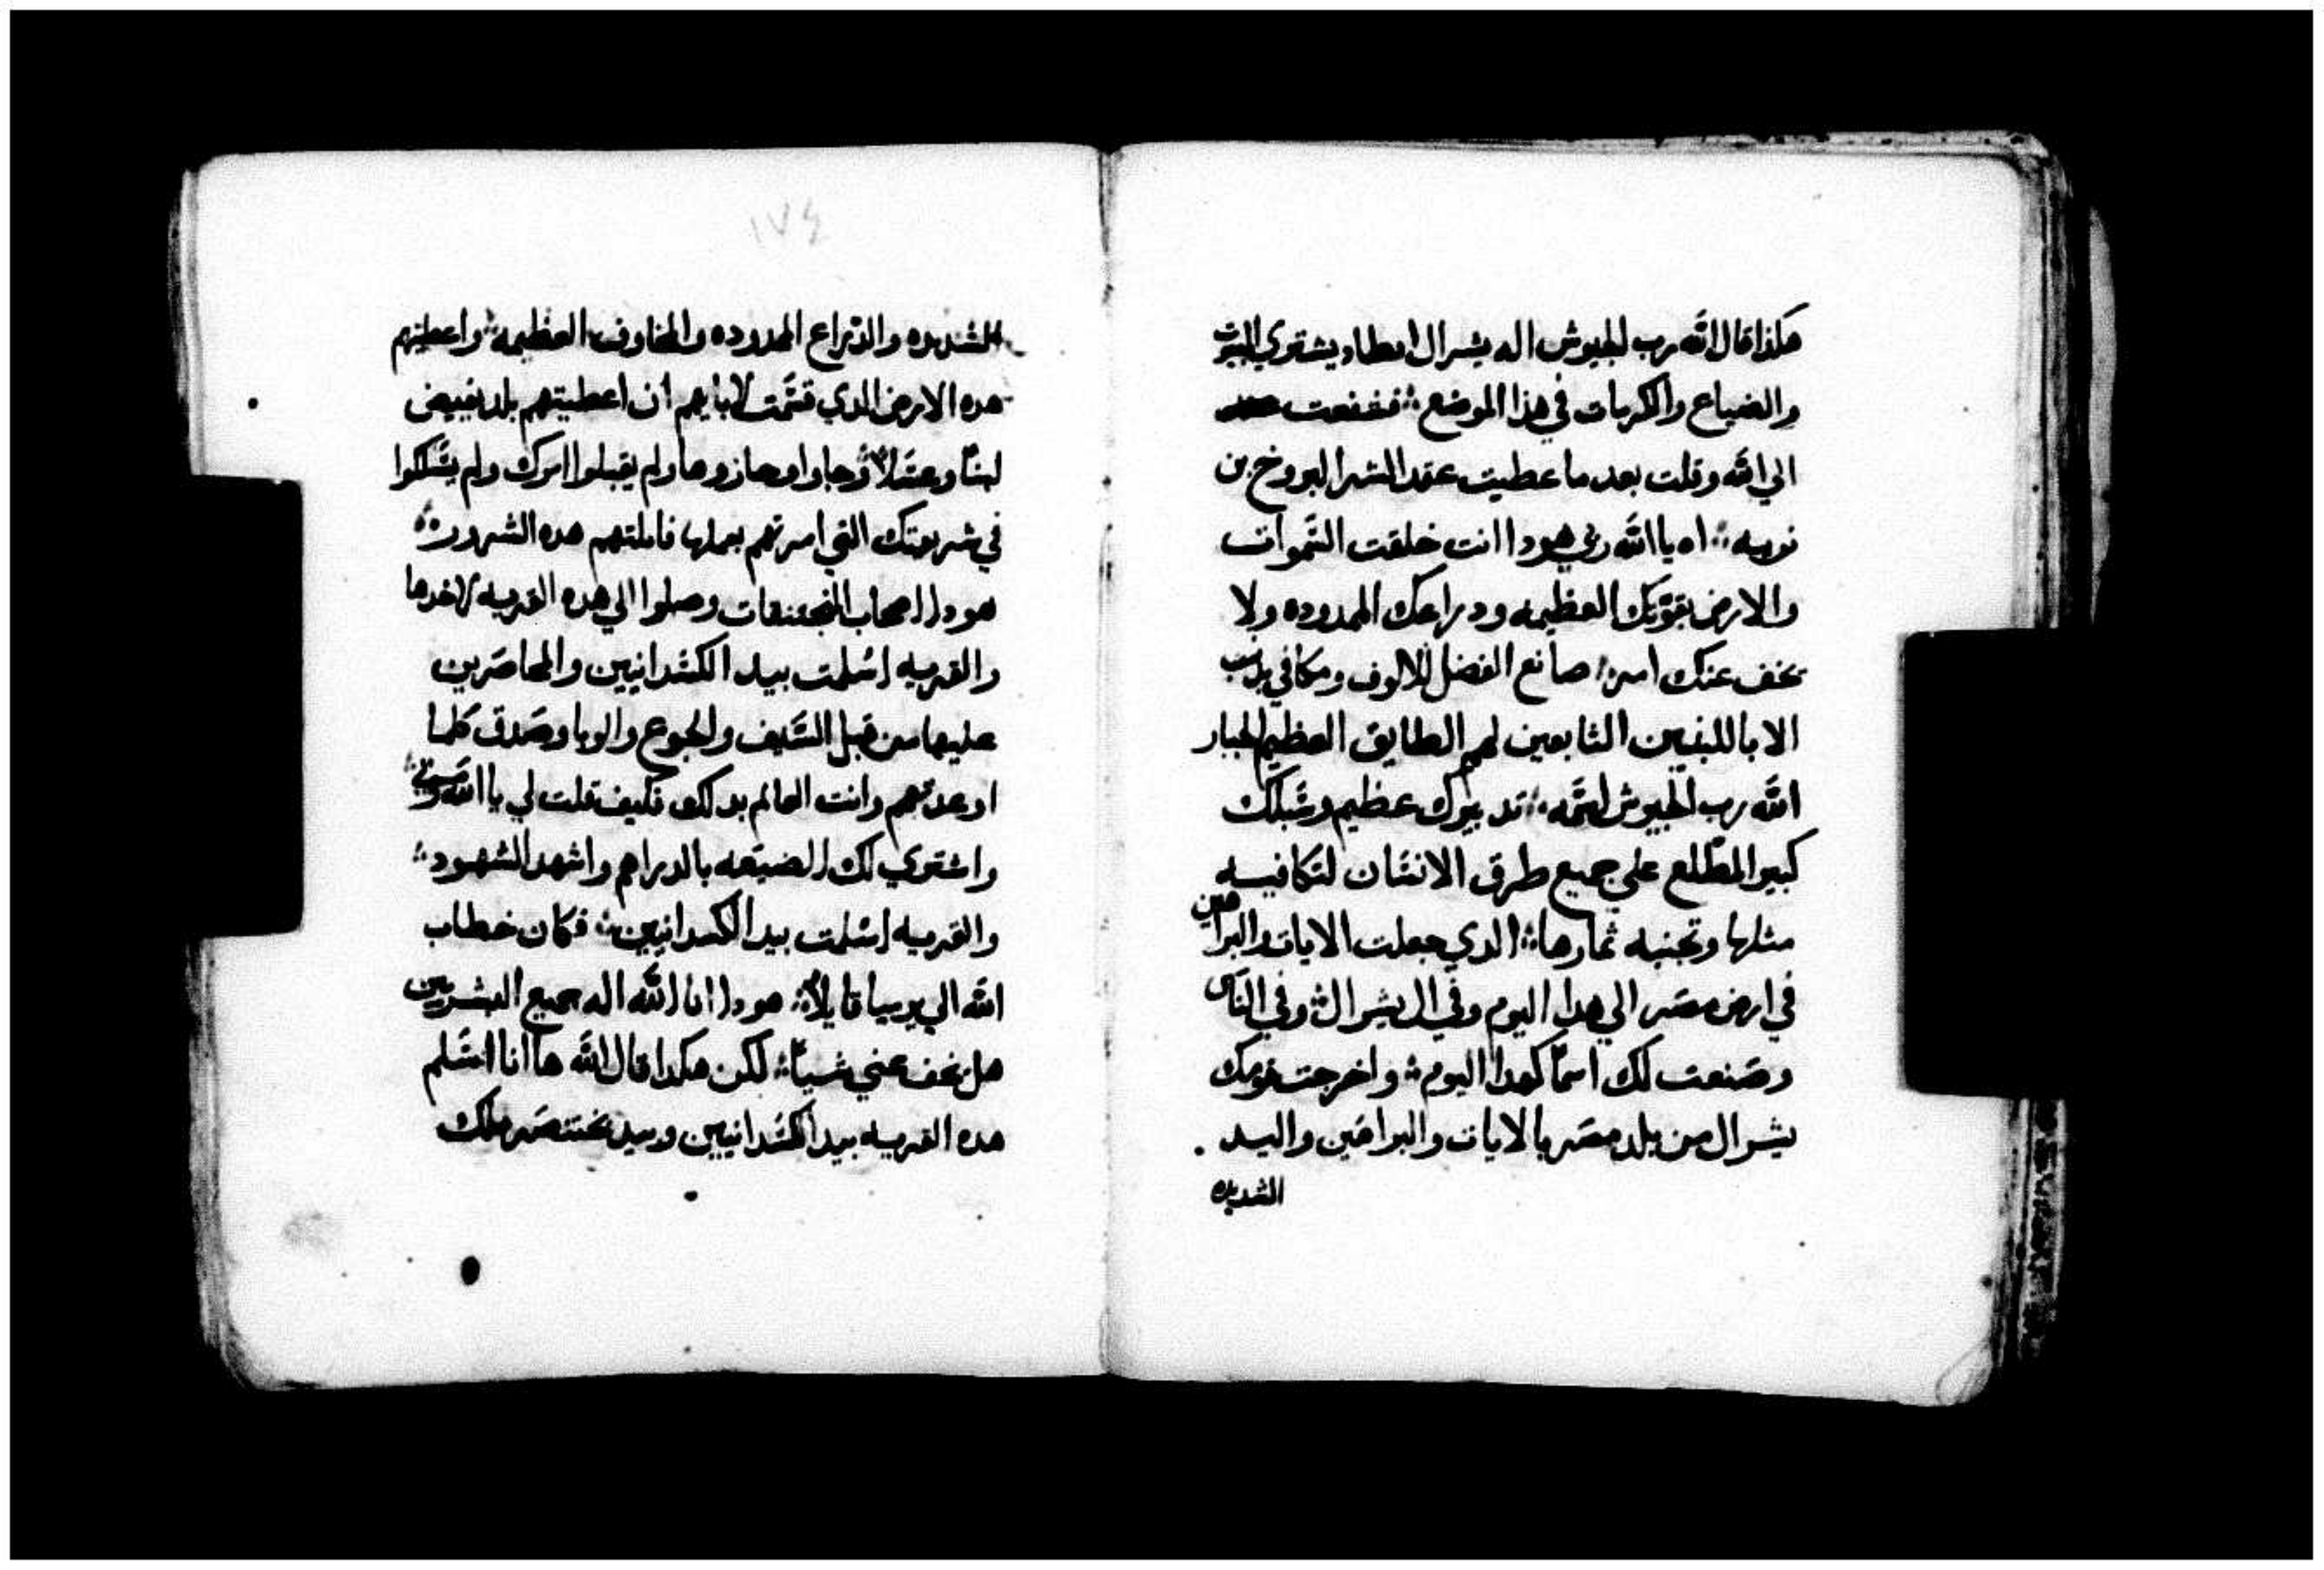 هكذا قال الله رب الجيوش اله يشرال ايضاد يشتوي البيوت
والضياع والكرمات في هذا الموضع فشفعت
الي الله وقلت بعد ما عطيت عقد الشرا لبروخ بن
نوريه اه يا الله ربي هودا انت خلقت السموات
والارض بقوتك العظيمه ودراعك الممدوده ولا
يخف عنك امر صانع الفضل للالوف ومكافي بدنب
الابا للبنين التابعين لهم الطايق العظيم الجبار
الله رب الجيوش اسمه تدبيرك عظيم وسبلك
كبير المطلع علي جميع طرق الانسان لتكافيه
مثلها وتجنيه ثمارها الدي جعلت الايات والبراهين
في ارض مصر الي هدا اليوم وفي ال يشرال وفي الناس
وصنعت لك اسما كهدا اليوم واخرجت قومك
يشرال من بلد مصر بالايات والبراهين واليد
الشديده
١٧٤
الشديده والدراع الممدوده والمخاوف العظيمه واعطيتهم
هده الارض الدي قسمت لابايهم ان اعطيتهم بلد تفيض
لبنا وعسلا وجاوا وحازوها ولم يقبلوا امرك ولم يسلكوا
في شريعتك التي امرتهم بعملها فاملتهم هده الشرور
هودا اصحاب المنجنيقات وصلوا الي هده القريه لاخدها
والقريه اسلمت بيد الكسدانيين والمحاصرين
عليها من قبل السيف والجوع والوبا وصدق كلما
اوعدتهم وانت العالم بدلك فكيف قلت لي يا الله ربي
واشتوي لك الضيعه بالدراهم واشهد الشهود
والقريه اسلمت بيد الكسدانيين فكان خطاب
الله الي يرميا قايلا هودا انا الله اله جميع البشريين
هل يخف عني شيا لكن هكدا قال الله ها انا اسلم
هده القريه بيد الكسدانيين وبيد بختنصر ملك